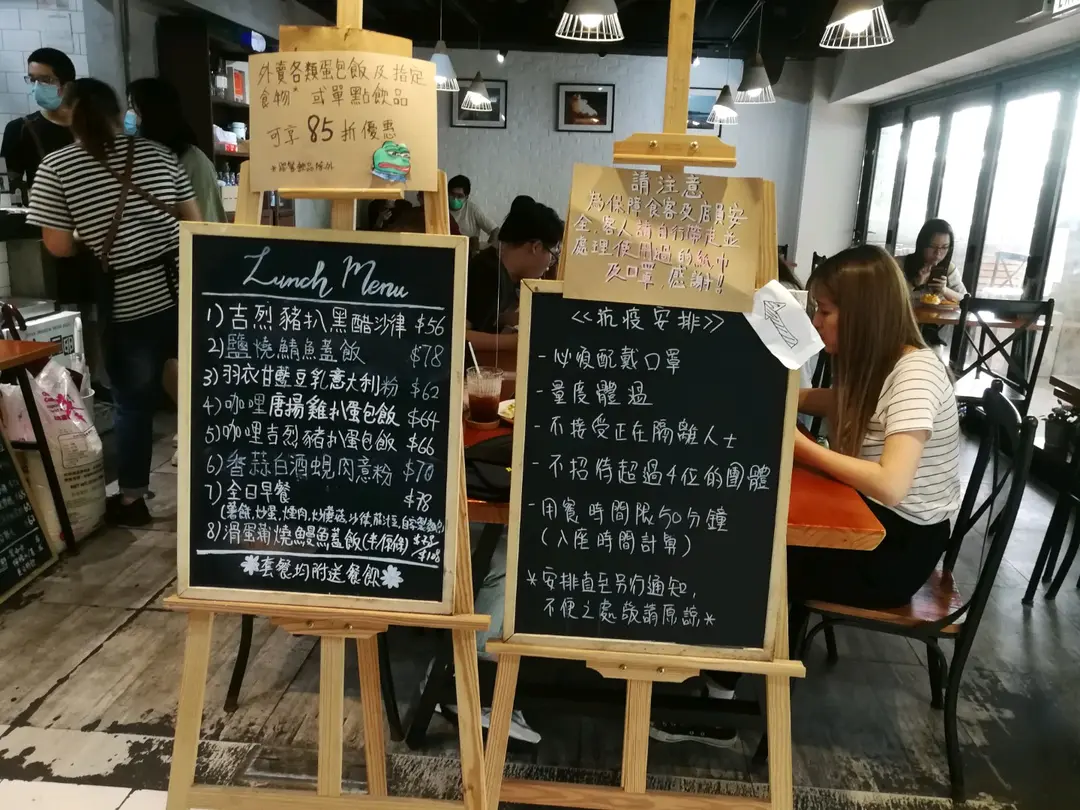 外賣各類蛋包飯及指定
食物* 或單點飲品
可享 85 折優惠
*套餐飲品除外
Lunch Menu
1) 吉烈豬扒黑醋沙律 $56
2) 鹽燒鯖魚蓋飯 $78
3) 羽衣甘藍豆乳意大利粉 $62
4) 咖哩唐揚雞扒蛋包飯 $64
5) 咖哩吉烈豬扒蛋包飯 $66
6) 香蒜白酒蜆肉意粉 $70
7) 全日早餐 $78
8) 滑蛋蒲燒鰻魚蓋飯
套餐均附送餐飲
請注意
為保障食客及店員安
全,客人請自行帶走並
處理使用過的紙巾
及口罩,感謝!
<<抗疫安排>>
- 必須配戴口罩
- 量度體溫
- 不接受正在隔離人士
- 不招待超過4位的團體
- 用餐時間限50分鐘
(入座時間計算)
*安排直至另行通知,
不便之處敬請原諒*